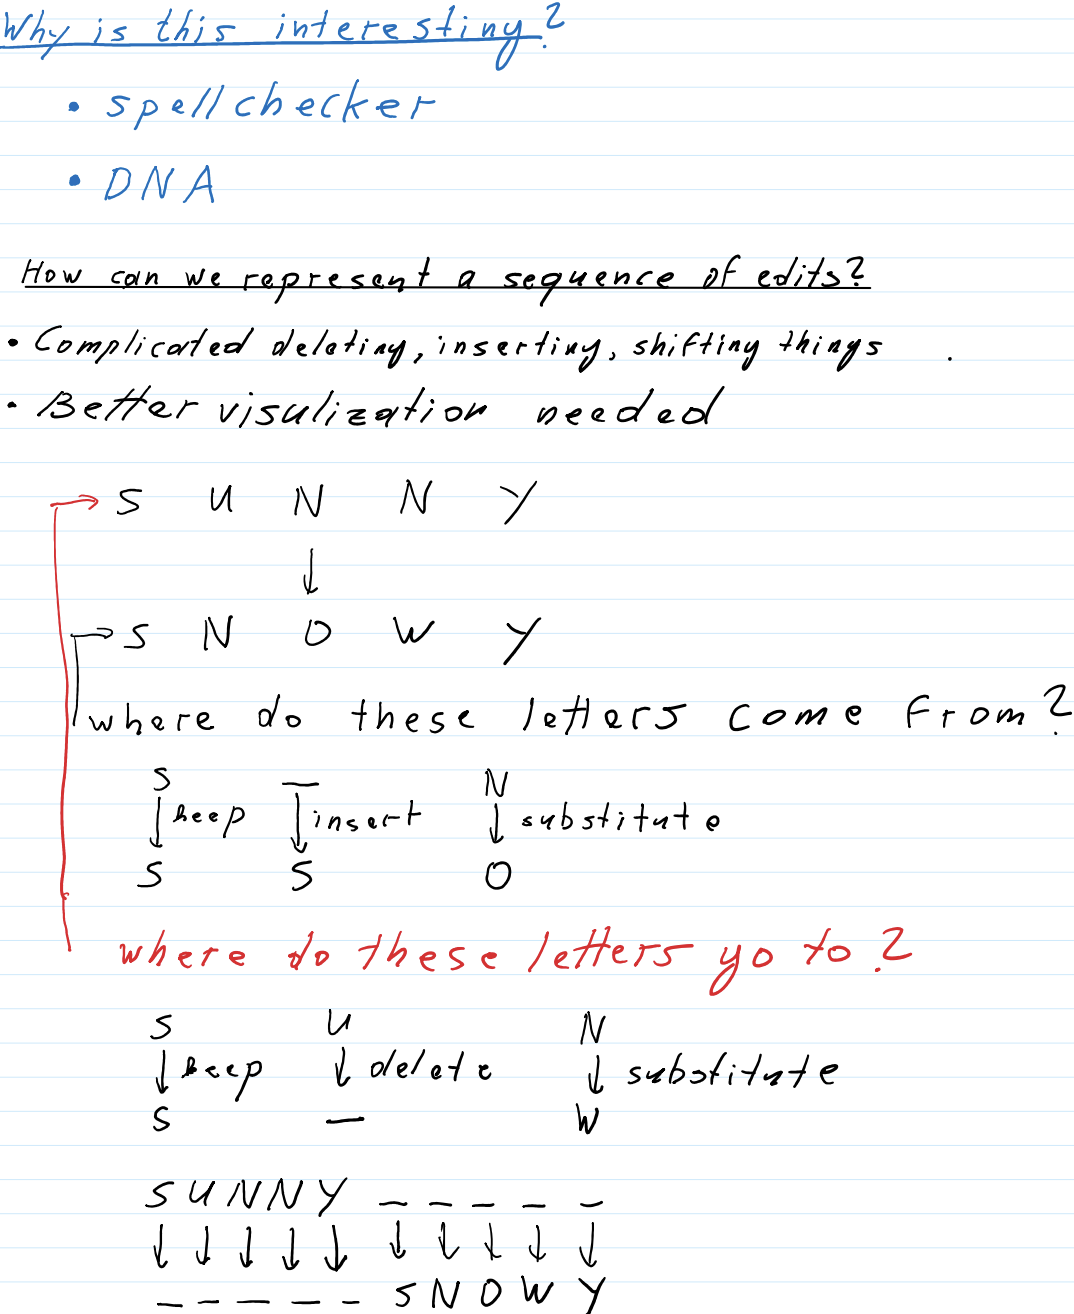 Why is this interesting?
• spellchecker
• DNA
How can we represent a sequence of edits?
• Complicated deleting, inserting, shifting things .
• Better visulization needed
S U N N Y
↓
S N O W Y
where do these letters come from?
S — N
↓ keep ↓ insert ↓ substitute
S S O
where do these letters go to?
S U N
↓ keep ↓ delete ↓ substitute
S — W
S U N N Y _ _ _ _ _
↓ ↓ ↓ ↓ ↓ ↓ ↓ ↓ ↓ ↓
_ _ _ _ _ S N O W Y